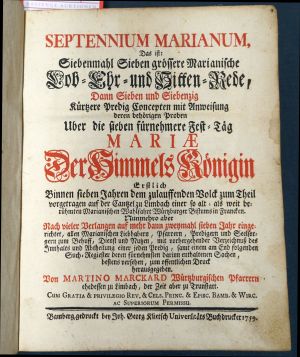 SEPTENNIUM MARIANUM,
Das ist:
Siebenmahl Sieben grössere Marianische
Lob-Ehr-und Sitten-Rede,
Dann Sieben und Siebenzig
Kürtzere Predig Concepten mit Anweisung
deren behörigen Proben
Uber die sieben fürnehmere Fest-Täg
MARIÆ
Der Himmels Königin
Erstlich
Binnen sieben Jahren dem zulauffenden Volck zum Theil
vorgetragen auf der Cantzel zu Limbach einer so alt- als weit be-
rühmten Marianischen Wahlfahrt Würtzburger Bistums in Francken.
Nunmehro aber
Nach vieler Verlangen auf mehr dann zweymahl sieben Jahr einge-
richtet, allen Marianischen Liebhabern, Pfarrern, Predigern und Seelsor-
gern zum Behuff, Dienst und Nutzen, mit vorhergehender Verzeichnus des
Innhalts und Abtheilung einer jeden Predig, samt einem am End folgenden
Such-Register deren fürnehmsten darinn enthaltenen Sachen,
bestens versehen, zum öffentlichen Druck
herausgegeben.
Von MARTINO MARCKARD Würtzburgischen Pfarrern
ehedessen zu Limbach, der Zeit aber zu Trunstatt.
CUM GRATIA & PRIVILEGIO REV. & CELS. PRINC. & EPISC. BAMB. & WIRC.
AC SUPERIORUM PERMISSU.
Bamberg, gedruckt bey Joh. Georg Klietsch Universitäts Buchdrucker 1759.